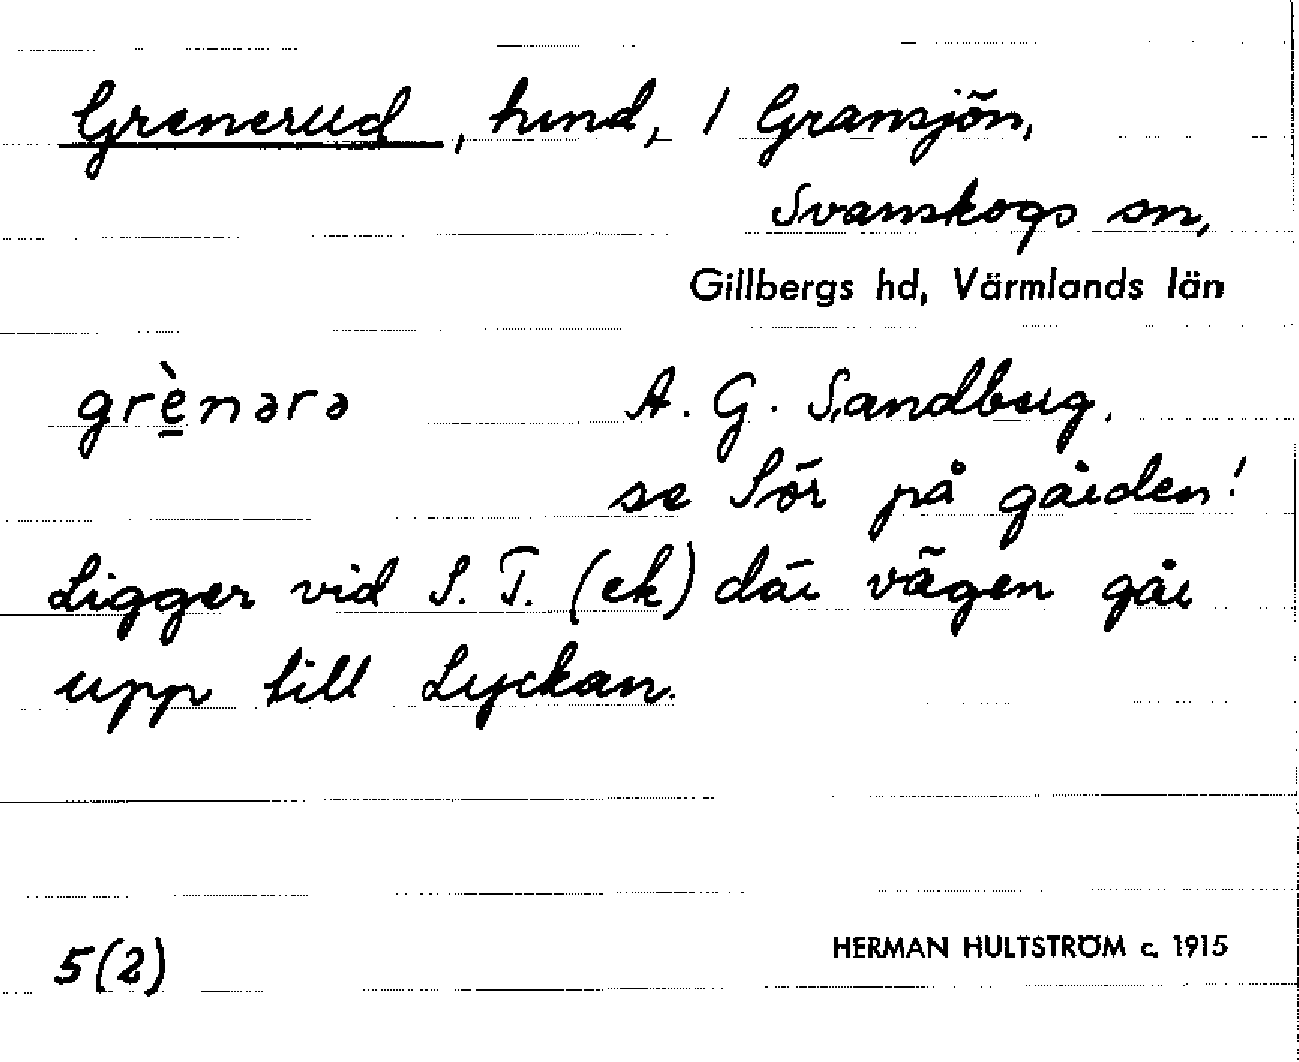 Grenerud, hmd, 1 Gransjön,
Svanskogs sn,
Gillbergs hd, Värmlands län
grènərə A. G. Sandberg.
se Sör på gården!
Ligger vid S. T. (ek) där vägen går
upp till Lyckan.
5(2) HERMAN HULTSTRÖM c. 1915